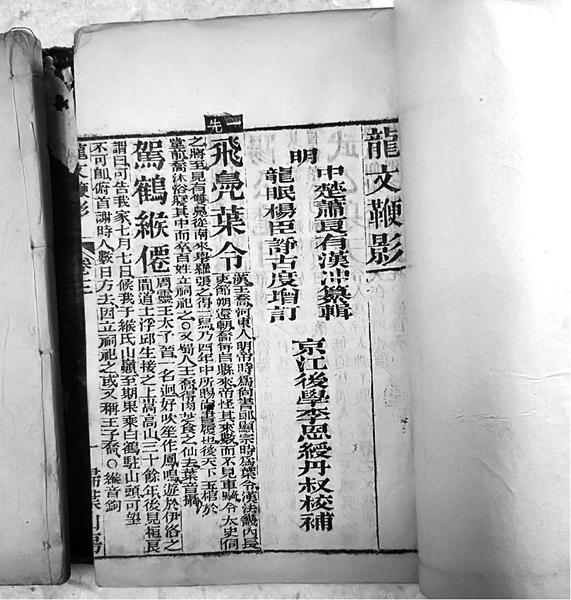 龍文鞭影
明
中楚蕭良有漢冲纂輯
龍眠楊臣諍古度增訂
京江後學李恩綬丹叔校補
一先
飛鳧葉令
漢王喬河東人明帝時爲尚書郎顯宗時爲葉令漢法畿內長
吏節朔還朝喬每自縣來帝怪其來數而不見車騎令太史伺
之將至見有雙鳧從南來舉羅張之得一舄乃四年中所賜尚書履也後天下玉棺於
堂前喬沐浴寢其中而卒百姓立祠祀之〇又蜀人王喬得肉芝食之仙去葉音攝
駕鶴緱僊
周靈王太子晉一名迥好吹笙作鳳鳴遊於伊洛之
間道士浮邱生接之上嵩高山三十餘年後見桓良
謂曰可告我家七月七日候我于緱氏山巓至期果乘白鶴駐山頭可望
不可卽俯首謝時人數日方去因立祠祀之或又稱王子喬〇緱音鉤
龍文鞭影
一